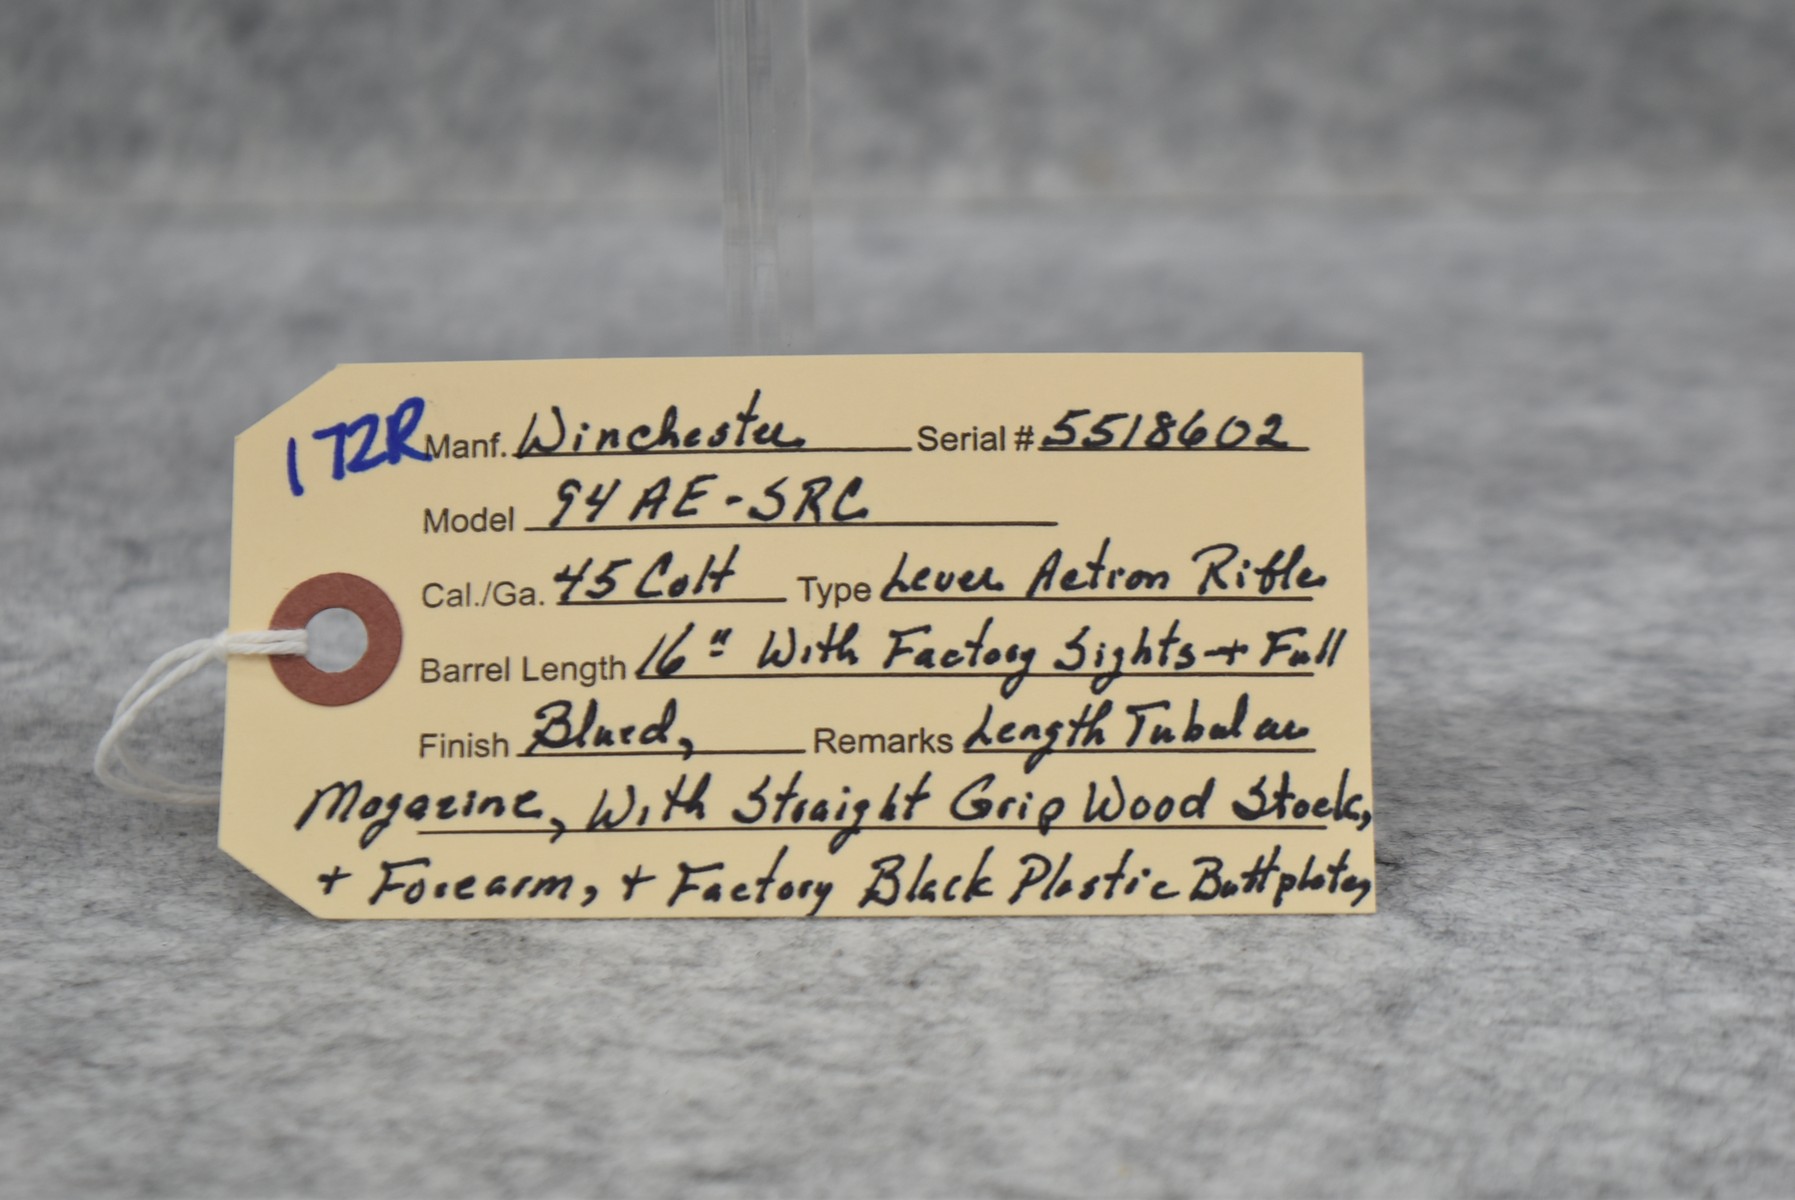 172R Manf. Winchester Serial # 5518602
Model 94 AE-SRC
Cal./Ga. 45 Colt Type Lever Action Rifle
Barrel Length 16" With Factory Sights + Full
Finish Blued, Remarks Length Tubular
Magazine, With Straight Grip Wood Stock,
+ Forearm, + Factory Black Plastic Buttplate,